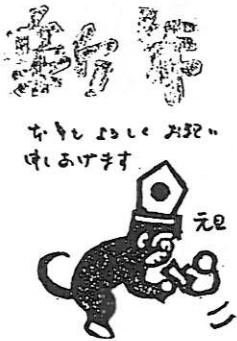 新年
本年も よろしく お願い
申しあげます
元旦